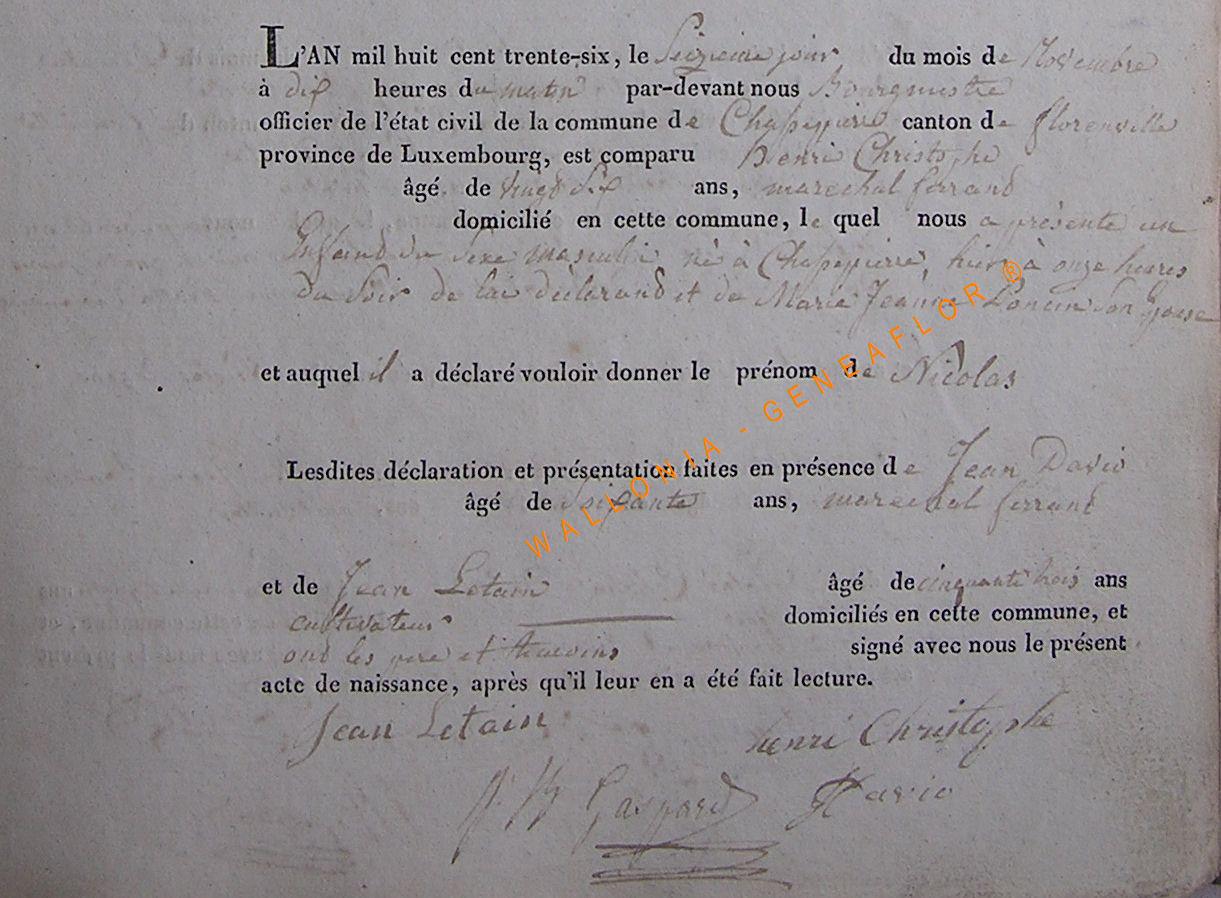 L'AN mil huit cent trente-six, le Seizieme jour du mois de Novembre
à dix heures du matin par-devant nous Bourgmestre
officier de l'état civil de la commune de Chassepierre canton de florenville
province de Luxembourg, est comparu henri Christophe
âgé de ans, marechal ferrand
domicilié en cette commune, le quel nous a présenté un
Enfand du Sexe masculin né à Chassepierre, hier à onze heures
du Soir de lui déclarand et de Marie Jeanne Poncin Son Epouse
et auquel il a déclaré vouloir donner le prénom de Nicolas
Lesdites déclaration et présentation faites en présence de Jean David
âgé de Soixante ans, marechal ferrand
et de Jean Letain âgé de cinquante trois ans
cultivateur domiciliés en cette commune, et
ond les pere et temoins signé avec nous le présent
acte de naissance, après qu'il leur en a été fait lecture.
Jean Letain henri Christophe
Gaspard David
WALLONIA - GENEAFLOR ®